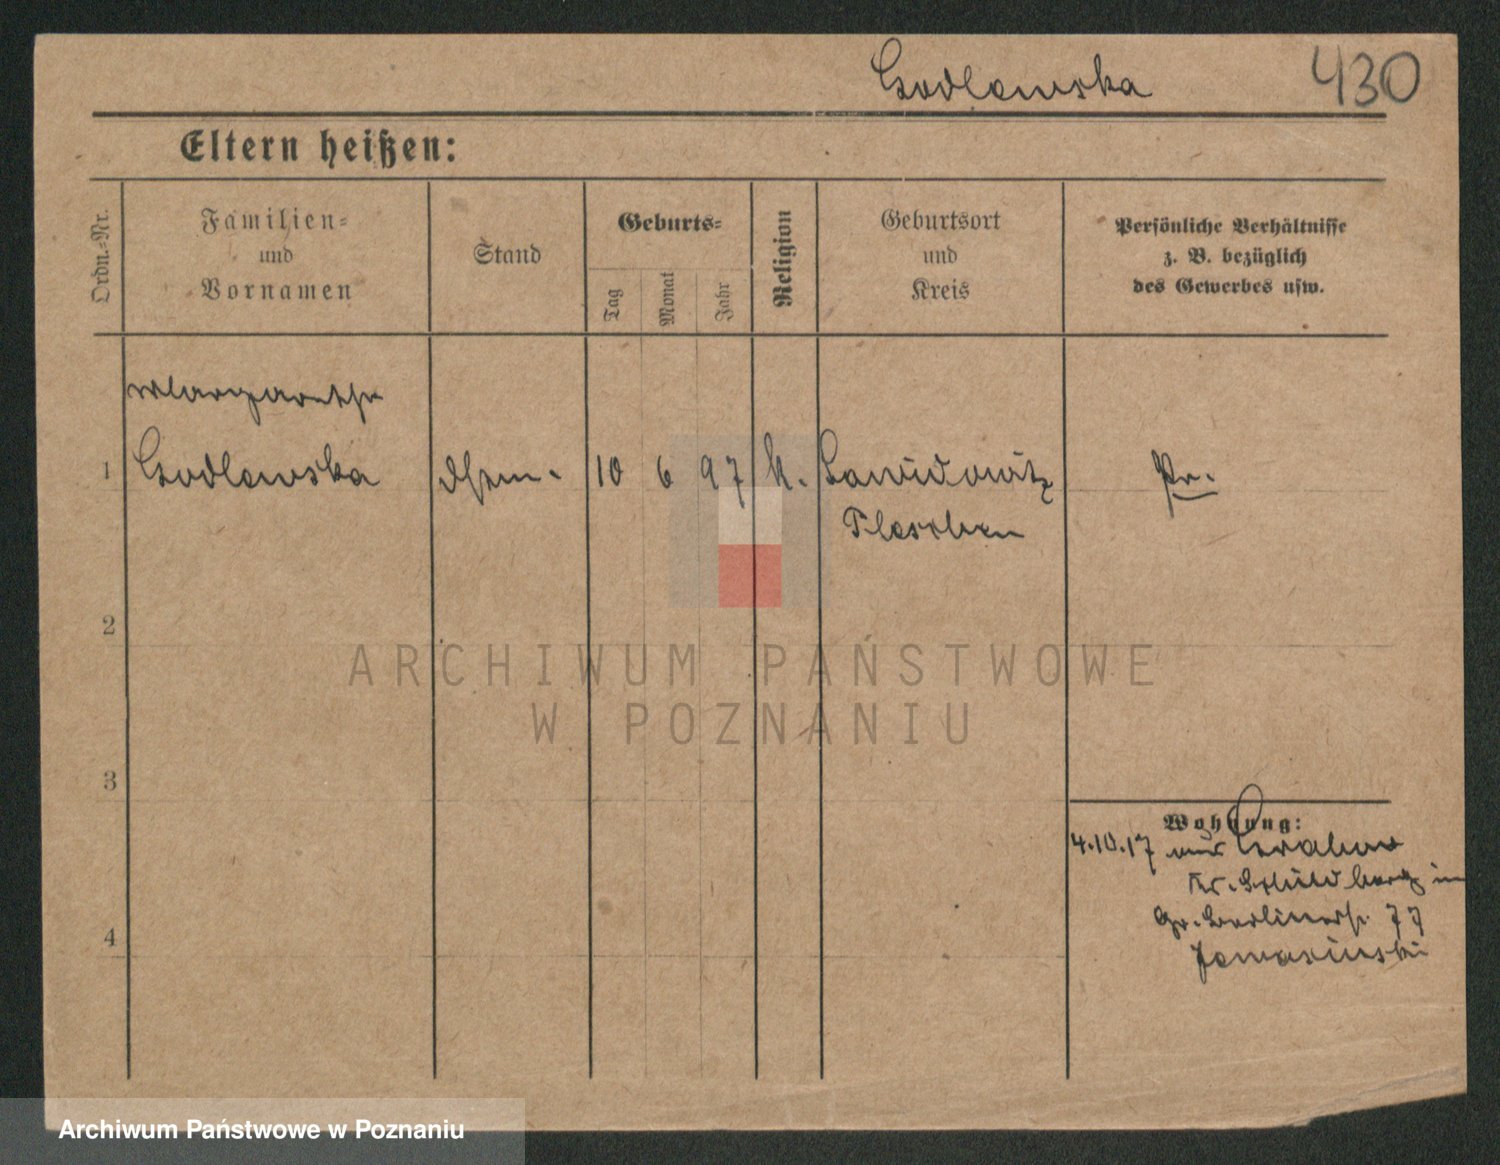 Godlewska 430
Eltern heißen:
Ordn.-Nr.
Familien-
und
Vornamen
Stand
Geburts-
Tag
Monat
Jahr
Religion
Geburtsort
und
Kreis
Persönliche Verhältnisse
z. B. bezüglich
des Gewerbes usw.
Margarethe
1 Godlewska 10 6 97 k. Pr.
Pleschen
2
3
4
ARCHIWUM PAŃSTWOWE
W POZNANIU
Wohnung:
4.10.17 aus Grabow
Kr. Schildberg in
Gr. Berlinerstr. 77
Archiwum Państwowe w Poznaniu